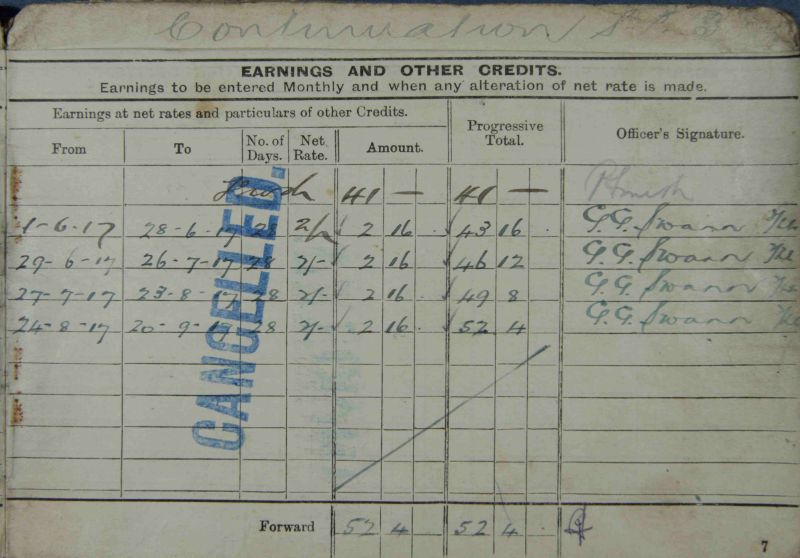 Continuation Sh 3
EARNINGS AND OTHER CREDITS.
Earnings to be entered Monthly and when any alteration of net rate is made.
Earnings at net rates and particulars of other Credits.
From To No. of Days. Net Rate. Amount. Progressive Total. Officer's Signature.
41 — 41 —
1-6-17 28-6-17 28 2/- 2 16 43 16 G. G. Swann
29-6-17 26-7-17 28 2/- 2 16 46 12 G. G. Swann
27-7-17 23-8-17 28 2/- 2 16 49 8 G. G. Swann
24-8-17 20-9-17 28 2/- 2 16 52 4 G. G. Swann
CANCELLED.
Forward 52 4 52 4
7